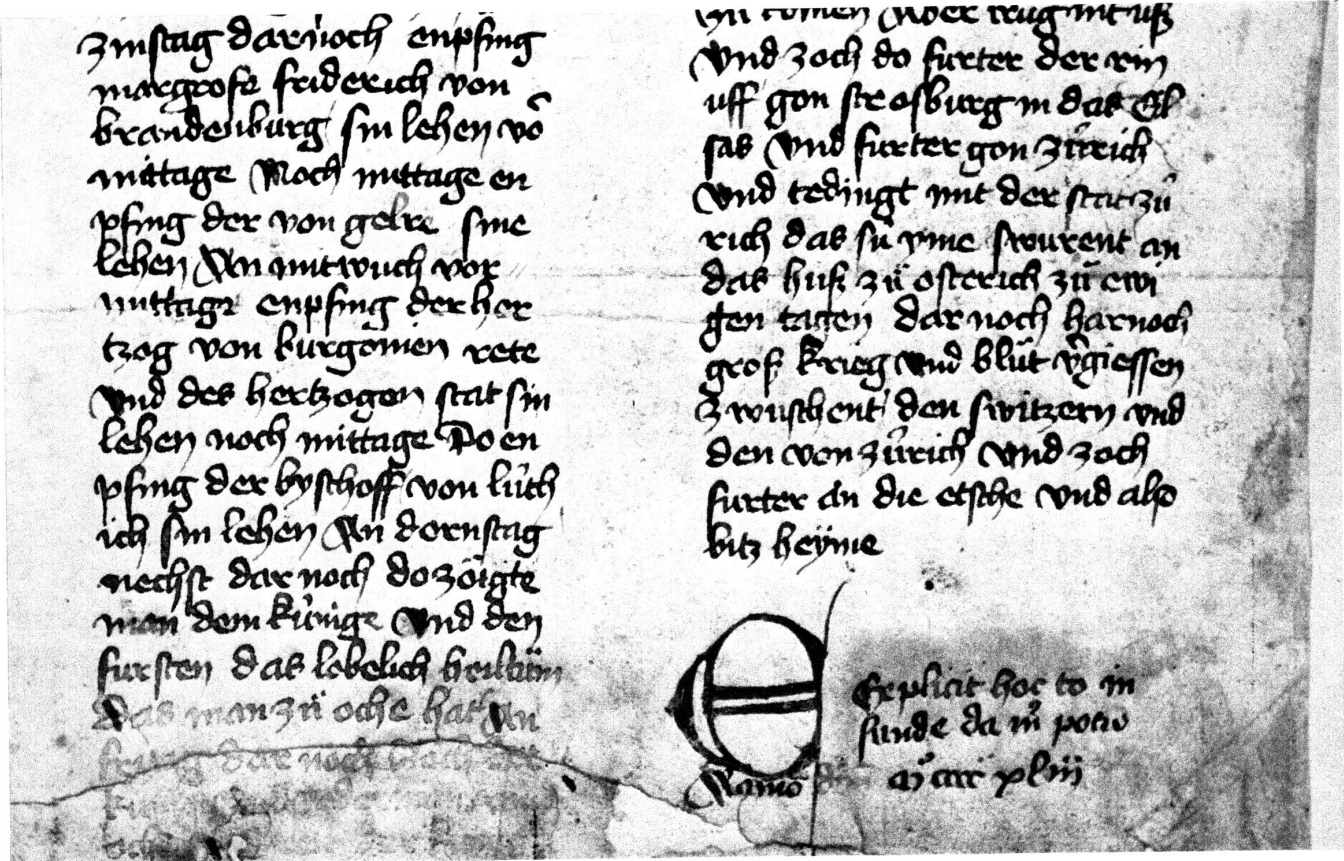 zinstag darnoch enpfing
margrofe friderich von
brandenburg sin lehen vō
mittage Noch mittage en
pfing der von gelre sine
lehen An mitwuch vor
mittage enpfing der her
tzog von burgonien rete
vnd des hertzogen stat sin
lehen noch mittage Do en
pfing der byschoff von lüth
ich sin lehen An dornstag
nechst dar noch do zöigte
man dem künige Vnd den
fursten das lobelich heiltům
das man zů oche hat An
dar noch
zü komen Aber trüg nit uß
Vnd zoch do furter der rin
uff gon strosburg in das El
sas Vnd furter gon zürich
Vnd tedingt mit der stat zü
rich das sü yme swurent an
das huß zů osterich zů ewi
gen tagen dar noch harnoch
groß krieg vnd blůt v̄giessen
Zwuschent den switzern vnd
den von zürich Vnd zoch
furter an die etsche vnd also
bitz heyme
Explicit hoc to in
funde da m̄ potū
xliii